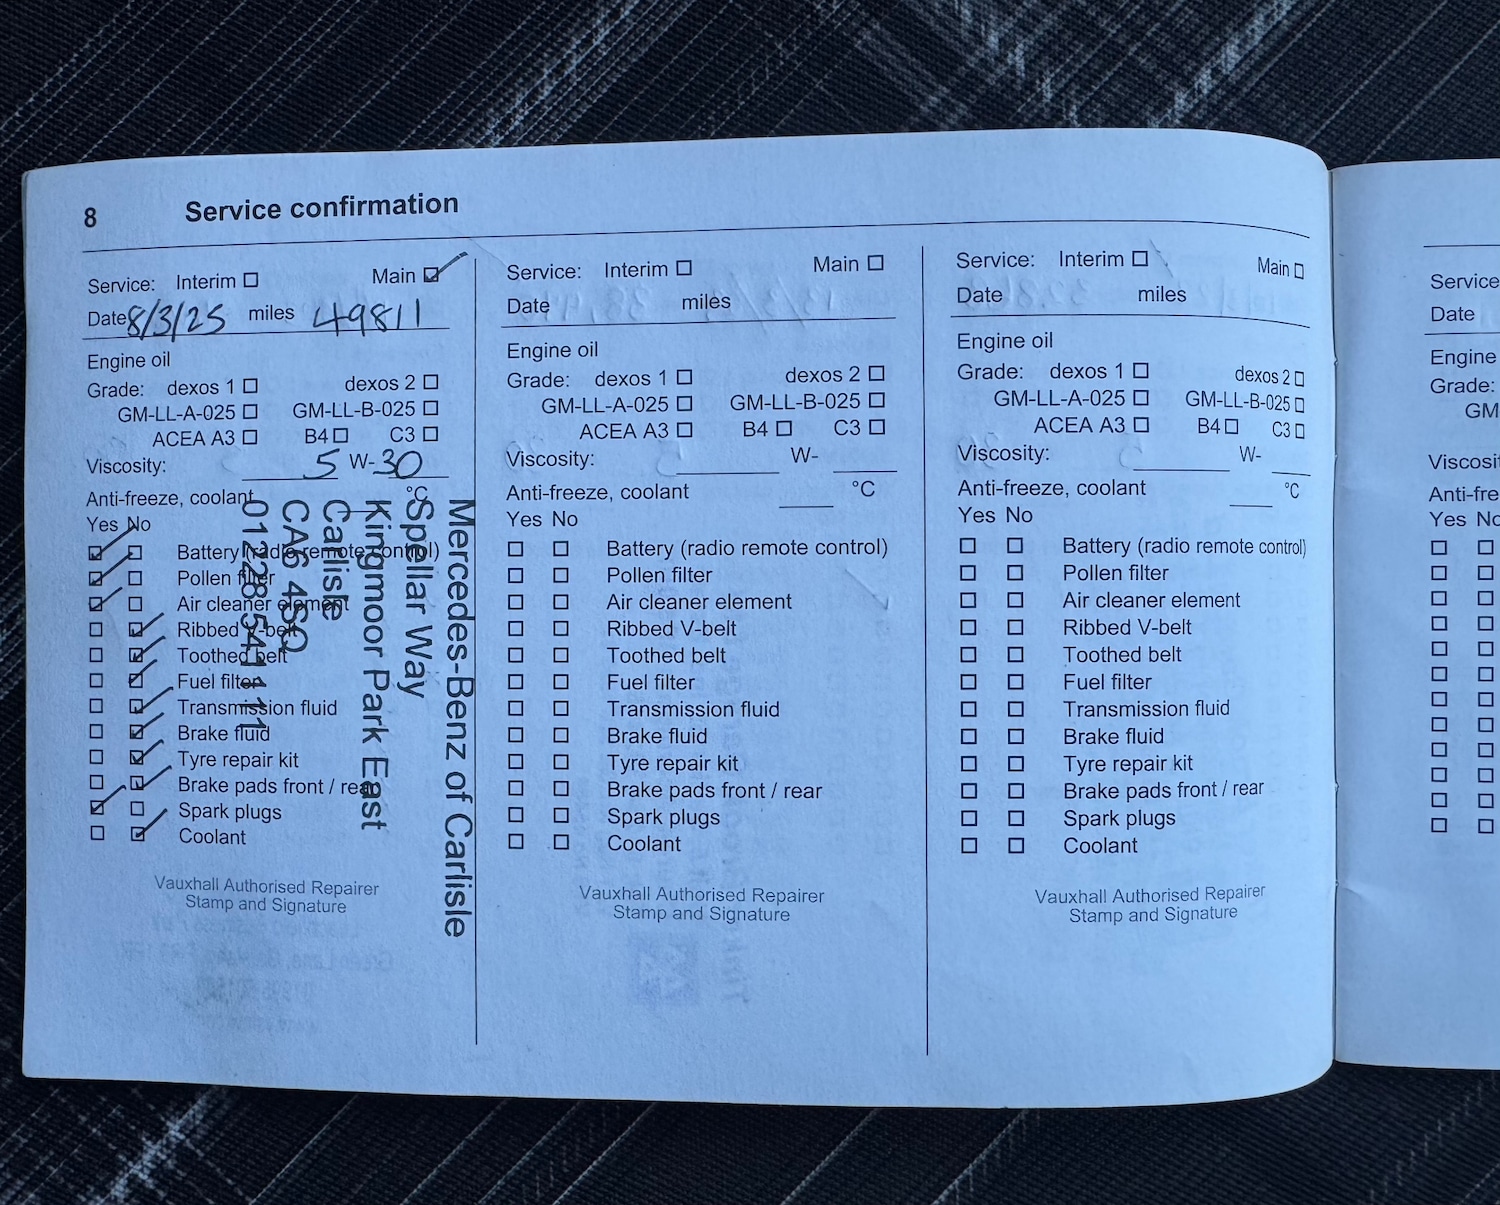 8 Service confirmation
Service: Interim Main
Date 8/3/25 miles 49811
Engine oil
Grade: dexos 1 dexos 2
GM-LL-A-025 GM-LL-B-025
ACEA A3 B4 C3
Viscosity: 5 W-30
Anti-freeze, coolant °C
Yes No
Battery (radio remote control)
Pollen filter
Air cleaner element
Ribbed V-belt
Toothed belt
Fuel filter
Transmission fluid
Brake fluid
Tyre repair kit
Brake pads front / rear
Spark plugs
Coolant
Vauxhall Authorised Repairer
Stamp and Signature
Mercedes-Benz of Carlisle
Spellar Way
Kingmoor Park East
Carlisle
CA6 4SQ
01228 541111
Service: Interim Main
Date miles
Engine oil
Grade: dexos 1 dexos 2
GM-LL-A-025 GM-LL-B-025
ACEA A3 B4 C3
Viscosity: W-
Anti-freeze, coolant °C
Yes No
Battery (radio remote control)
Pollen filter
Air cleaner element
Ribbed V-belt
Toothed belt
Fuel filter
Transmission fluid
Brake fluid
Tyre repair kit
Brake pads front / rear
Spark plugs
Coolant
Vauxhall Authorised Repairer
Stamp and Signature
Service: Interim Main
Date miles
Engine oil
Grade: dexos 1 dexos 2
GM-LL-A-025 GM-LL-B-025
ACEA A3 B4 C3
Viscosity: W-
Anti-freeze, coolant °C
Yes No
Battery (radio remote control)
Pollen filter
Air cleaner element
Ribbed V-belt
Toothed belt
Fuel filter
Transmission fluid
Brake fluid
Tyre repair kit
Brake pads front / rear
Spark plugs
Coolant
Vauxhall Authorised Repairer
Stamp and Signature
Service
Date
Engine
Grade:
GM
Viscosit
Anti-fre
Yes No